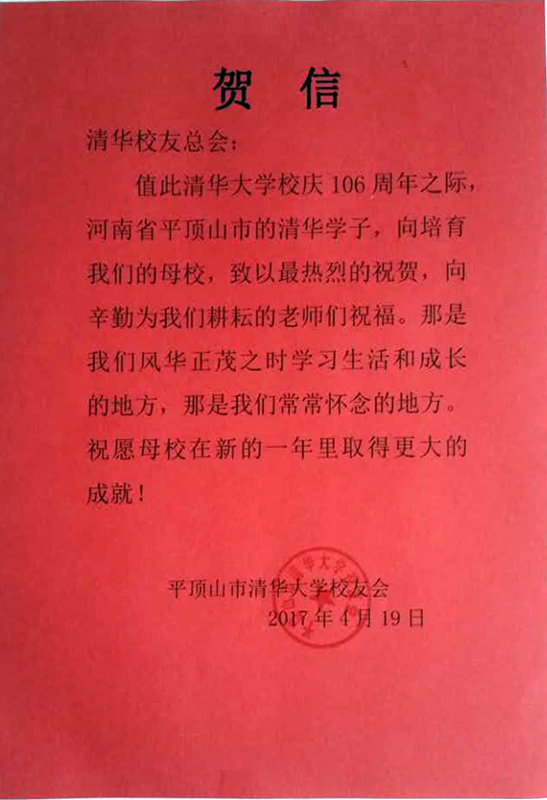 贺 信
清华校友总会：
值此清华大学校庆 106 周年之际，
河南省平顶山市的清华学子，向培育
我们的母校，致以最热烈的祝贺，向
辛勤为我们耕耘的老师们祝福。那是
我们风华正茂之时学习生活和成长
的地方，那是我们常常怀念的地方。
祝愿母校在新的一年里取得更大的
成就！
平顶山市清华大学校友会
2017 年 4 月 19 日